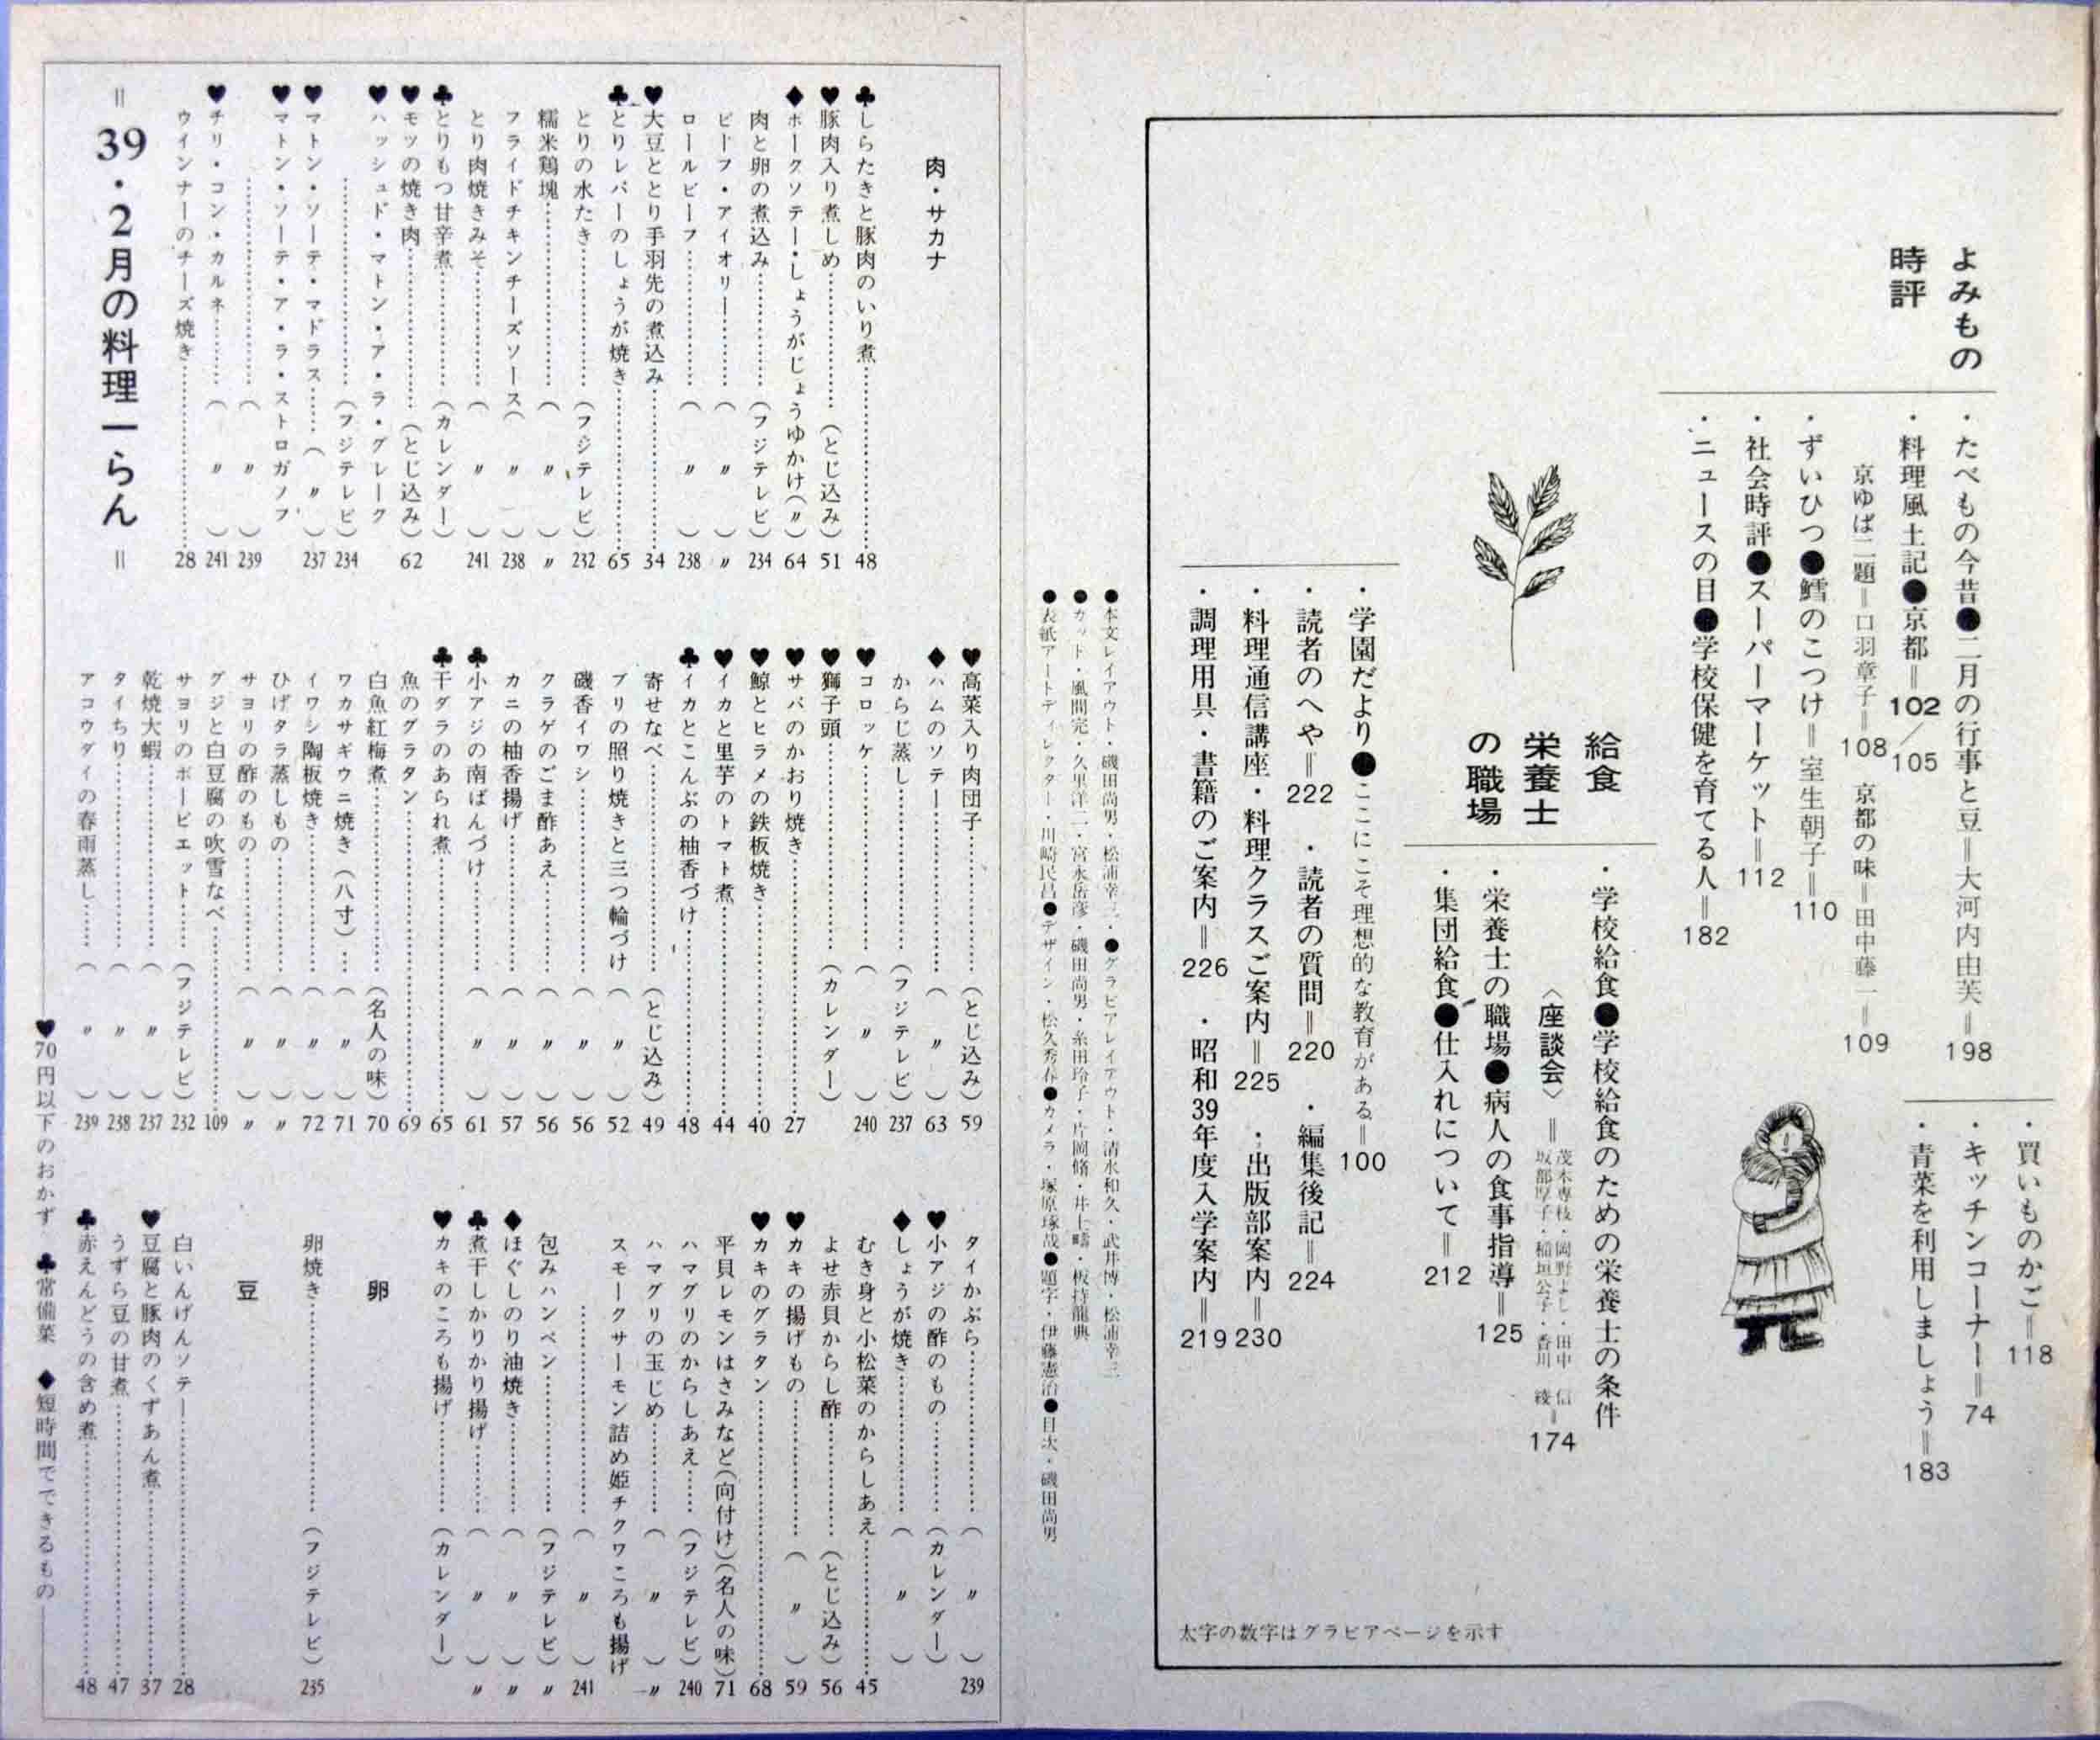 よみもの
時評
・たべもの今昔●二月の行事と豆＝大河内由芙＝198
・料理風土記●京都＝102／105
京ゆば二題＝口羽章子＝108　京都の味＝田中藤一＝109
・ずいひつ●鱈のこつけ＝室生朝子＝110
・社会時評●スーパーマーケット＝112
・ニュースの目●学校保健を育てる人＝182
・買いものかご＝118
・キッチンコーナー＝74
・青菜を利用しましょう＝183
給食
栄養士
の職場
・学校給食●学校給食のための栄養士の条件
〈座談会〉＝茂木専枝・岡野よし・田中　信
坂部厚子・稲垣公子・香川　綾＝174
・栄養士の職場●病人の食事指導＝125
・集団給食●仕入れについて＝212
・学園だより●ここにこそ理想的な教育がある＝100
・読者のへや＝222　・読者の質問＝220　・編集後記＝224
・料理通信講座・料理クラスご案内＝225　・出版部案内＝230
・調理用具・書籍のご案内＝226　・昭和39年度入学案内＝219
太字の数字はグラビアページを示す
●本文レイアウト・磯田尚男・松浦幸三・●グラビアレイアウト・清水和久・武井博・松浦幸三
●カット・風間完・久里洋二・宮永岳彦・磯田尚男・糸田玲子・片岡脩・井上疇・板持龍典
●表紙アートディレクター・川崎民昌●デザイン・松久秀春●カメラ・塚原琢哉●題字・伊藤憲治●目次・磯田尚男
肉・サカナ
♣しらたきと豚肉のいり煮……48
♥豚肉入り煮しめ……（とじ込み）51
♦ポークソテー・しょうがじょうゆかけ（〃）64
肉と卵の煮込み……（フジテレビ）234
ビーフ・アイオリー……（〃）〃
ロールビーフ……（〃）238
♥大豆ととり手羽先の煮込み……34
♣とりレバーのしょうが焼き……65
とりの水たき……（フジテレビ）232
糯米鶏塊……（〃）〃
フライドチキンチーズソース（〃）238
とり肉焼きみそ……（〃）241
♣とりもつ甘辛煮……（カレンダー）
♥モツの焼き肉……（とじ込み）62
♥ハッシュド・マトン・ア・ラ・グレーク
……（フジテレビ）234
♥マトン・ソーテ・マドラス……（〃）237
♥マトン・ソーテ・ア・ラ・ストロガノフ
……（〃）239
♥チリ・コン・カルネ……（〃）241
ウインナーのチーズ焼き……28
＝39・2月の料理一らん＝
♥高菜入り肉団子……（とじ込み）59
♦ハムのソテー……（〃）63
からじ蒸し……（フジテレビ）237
♥コロッケ……（〃）240
♥獅子頭……（カレンダー）
♥サバのかおり焼き……27
♥鯨とヒラメの鉄板焼き……40
♥イカと里芋のトマト煮……44
♣イカとこんぶの柚香づけ……48
寄せなべ……（とじ込み）49
ブリの照り焼きと三つ輪づけ（〃）52
磯香イワシ……（〃）56
クラゲのごま酢あえ……（〃）56
カニの柚香揚げ……（〃）57
♣小アジの南ばんづけ……（〃）61
♣干ダラのあられ煮……65
魚のグラタン……69
白魚紅梅煮……（名人の味）70
ワカサギウニ焼き（八寸）…（〃）71
イワシ陶板焼き……（〃）72
ひげタラ蒸しもの……（〃）〃
サヨリの酢のもの……（〃）〃
グジと白豆腐の吹雪なべ……109
サヨリのポーピエット……（フジテレビ）232
乾焼大蝦……（〃）237
タイちり……（〃）238
アコウダイの春雨蒸し……（〃）239
タイかぶら……（〃）239
♥小アジの酢のもの……（カレンダー）
♦しょうが焼き……（〃）
むき身と小松菜のからしあえ……45
よせ赤貝からし酢……（とじ込み）56
♥カキの揚げもの……（〃）59
♥カキのグラタン……68
平貝レモンはさみなど（向付け）（名人の味）71
ハマグリのからしあえ……（フジテレビ）240
ハマグリの玉じめ……（〃）〃
スモークサーモン詰め姫チクワころも揚げ
……（〃）241
包みハンペン……（フジテレビ）〃
♦ほぐしのり油焼き……（〃）〃
♣煮干しかりかり揚げ……（〃）〃
♥カキのころも揚げ……（カレンダー）
卵
卵焼き……（フジテレビ）235
豆
白いんげんソテー……28
♥豆腐と豚肉のくずあん煮……37
うずら豆の甘煮……47
♣赤えんどうの含め煮……48
♥70円以下のおかず　♣常備菜　♦短時間でできるもの